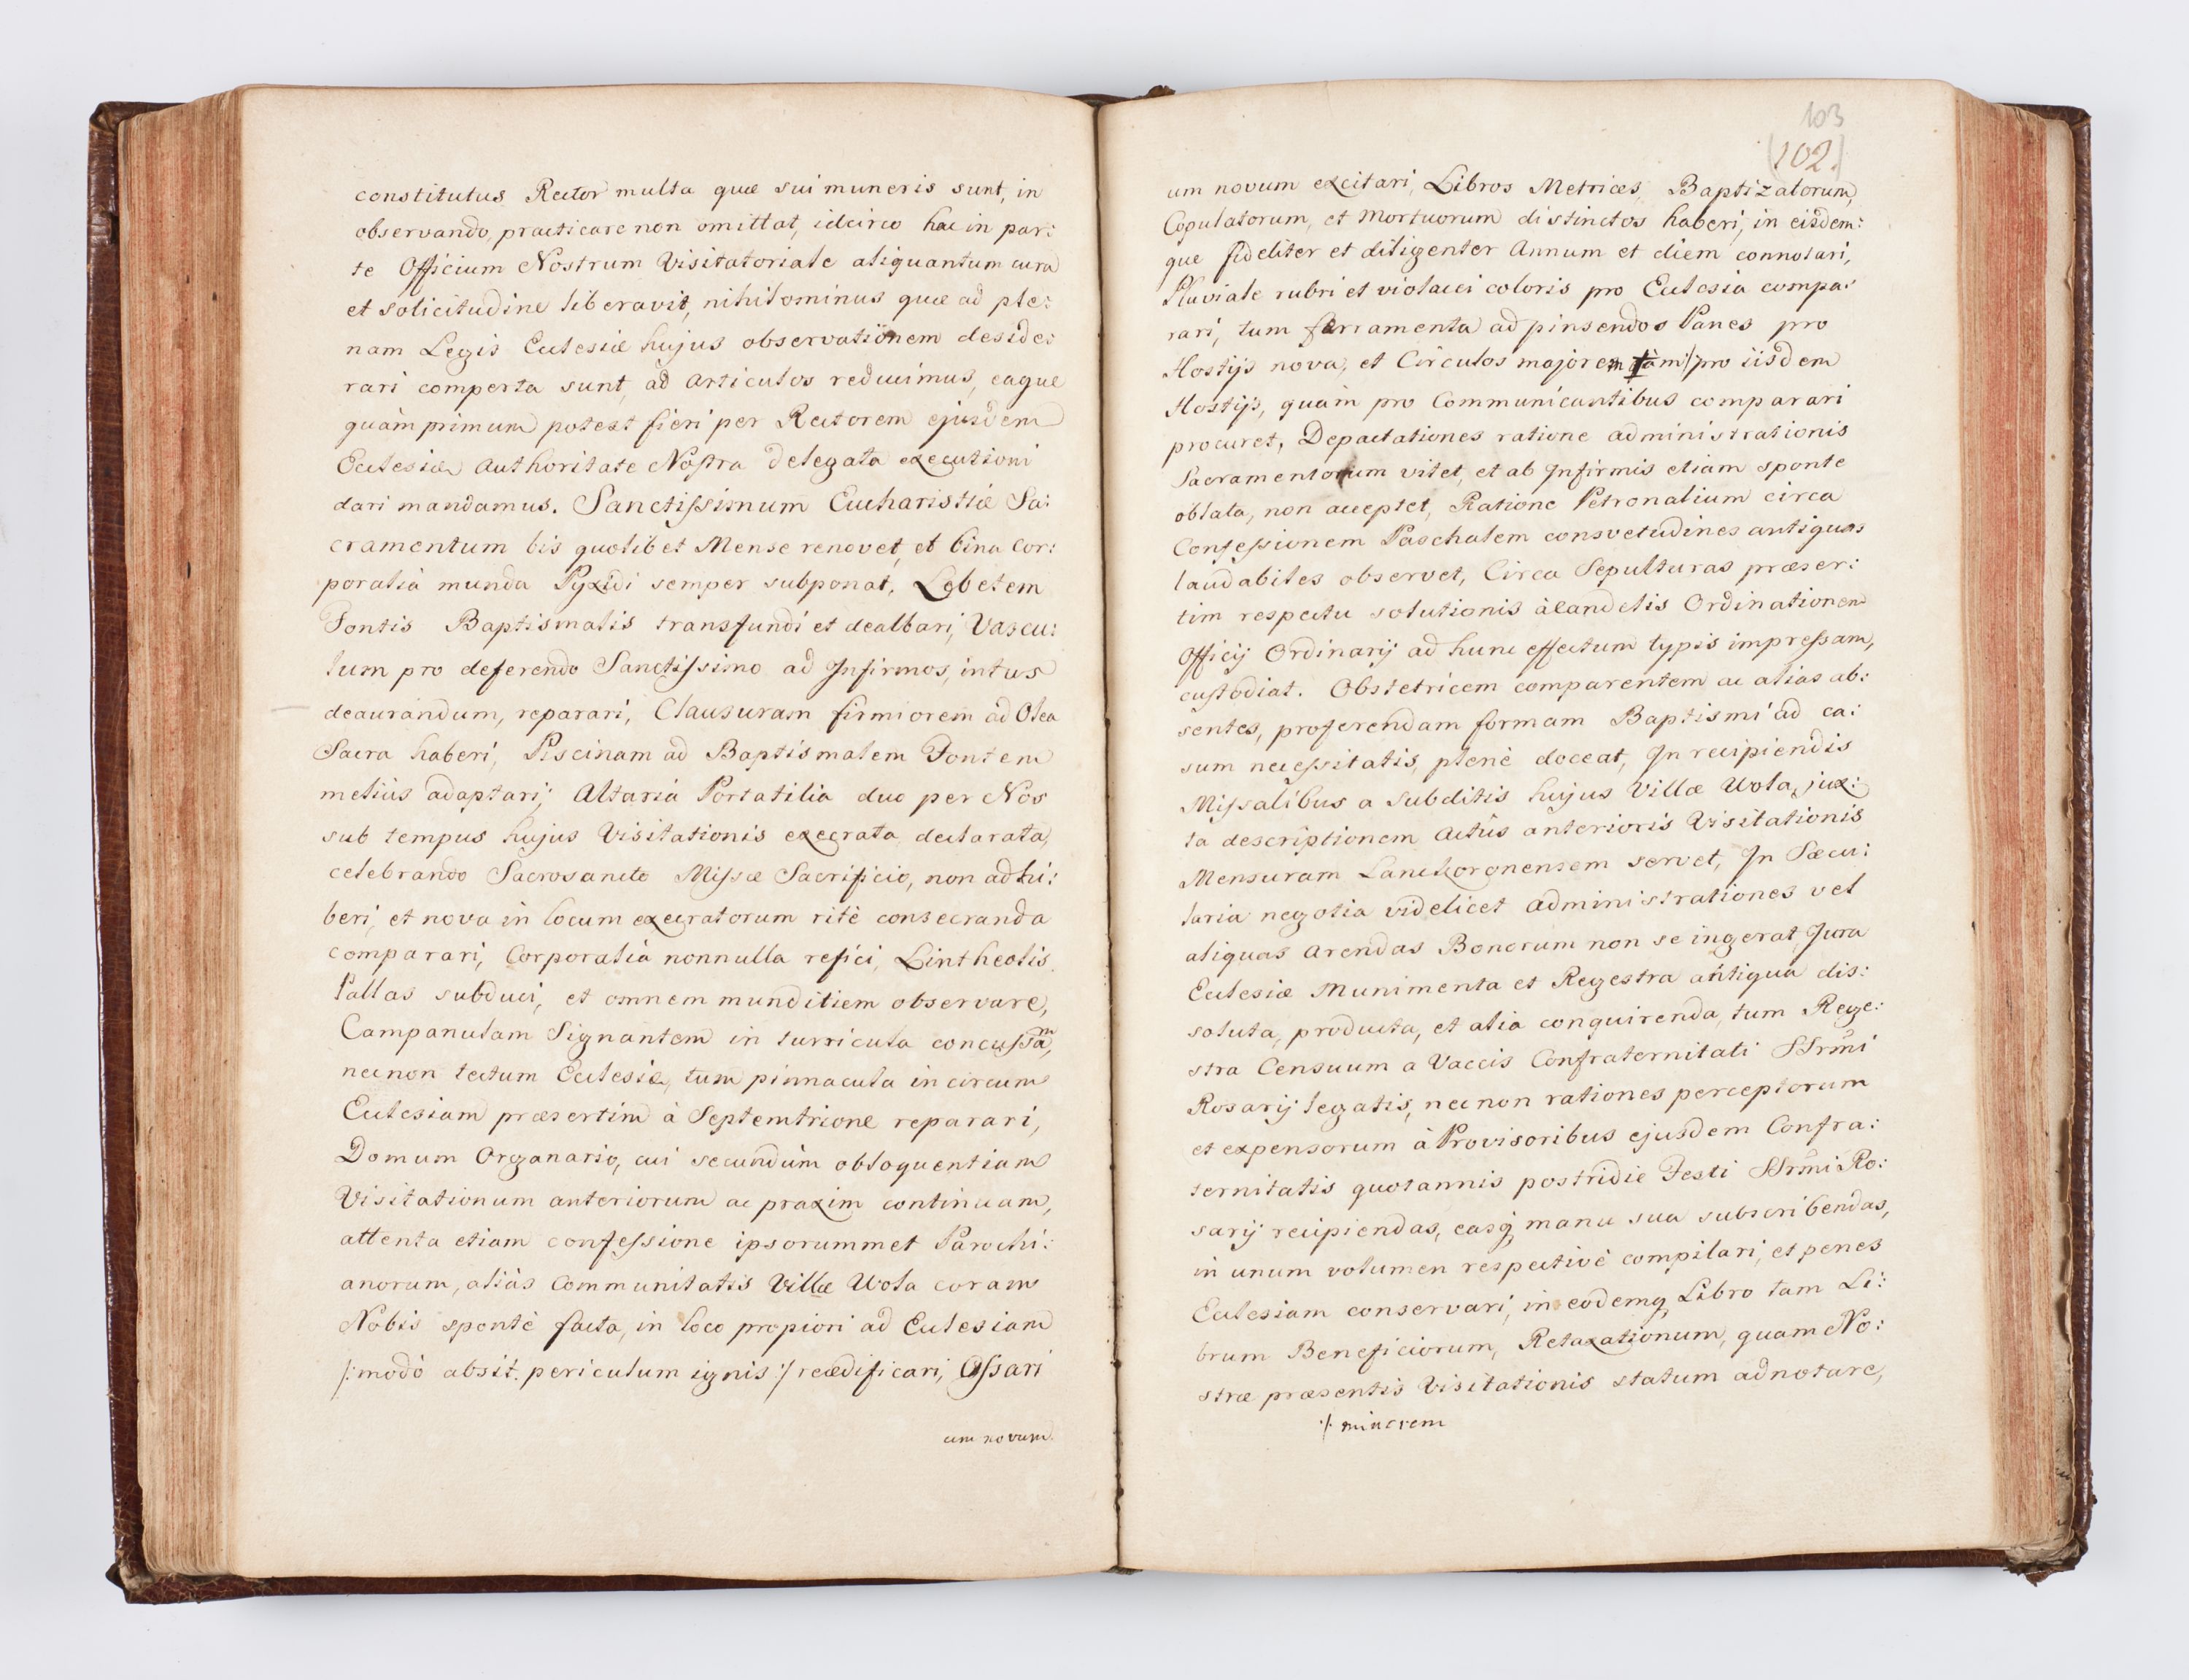 constitutus Rector multa quæ sui muneris sunt, in
observando, practicare non omittat, idcirco hac in par:
te Officium Nostrum Visitatoriale aliquantum cura
et solicitudine liberavit, nihilominus quæ ad ple:
nam Legis Ecclesiæ hujus observationem deside:
rari comperta sunt, ad articulos reducimus, eaque
quàm primum potest fieri per Rectorem ejusdem
Ecclesiæ Authoritate Nostra delegata executioni
dari mandamus. Sanctissimum Eucharistiæ Sa:
cramentum bis quolibet Mense renovet, et bina Cor:
poralia munda Pyxidi semper subponat, Lebetem
Fontis Baptismalis transfundi et dealbari, Vascu:
lum pro deferendo Sanctissimo ad Infirmos, intus
deaurandum, reparari, Clausuram firmiorem ad Olea
Sacra haberi, Piscinam ad Baptismalem Fontem
meliùs adaptari, Altaria Portatilia duo per Nos
sub tempus hujus Visitationis execrata declarata,
celebrando Sacrosancto Missæ Sacrificio, non adhi:
beri, et nova in locum execratorum ritè consecranda
comparari, Corporalia nonnulla refici, Lintheolis
Pallas subduci, et omnem munditiem observare,
Campanulam Signantem in turricula concussam,
necnon tectum Ecclesiæ, tum pinnacula in circum
Ecclesiam præsertim à Septemtrione reparari,
Domum Organario, cui secundùm obloquentiam
Visitationum anteriorum ac praxim continuam,
attenta etiam confessione ipsorummet Parochi:
anorum, aliàs Communitatis Villæ Wola coram
Nobis spontè facta, in loco propiori ad Ecclesiam
/: modò absit periculum ignis :/ reædificari, Ossari
um novum.
103
(102.)
um novum excitari, Libros Metrices, Baptizatorum,
Copulatorum, et Mortuorum distinctos haberi, in eisdem:
que fideliter et diligenter Annum et diem connotari,
Pluviale rubri et violacei coloris pro Ecclesia compa:
rari, tum ferramenta ad pinsendos Panes pro
Hostijs nova, et Circulos majorem tàm ·/· pro iisdem
Hostijs, quàm pro Communicantibus comparari
procuret, Depactationes ratione administrationis
Sacramentorum vitet, et ab Infirmis etiam sponte
oblata, non acceptet, Ratione Petronalium circa
Confessionem Paschalem consvetudines antiquas
laudabiles observet, Circa Sepulturas præser:
tim respectu solutionis à candelis Ordinationem
Officij Ordinarij ad hunc effectum typis impressam,
custodiat. Obstetricem comparentem ac alias ab:
sentes, proferendam formam Baptismi ad ca:
sum necessitatis, plenè doceat, In recipiendis
Missalibus a Subditis hujus Villæ Wola, jux:
ta descriptionem actûs anterioris Visitationis
Mensuram Lanckoronensem servet, In Sæcu:
laria negotia videlicet administrationes vel
aliquas arendas Bonorum non se ingerat, Jura
Ecclesiæ Munimenta et Regestra antiqua dis:
soluta, producta, et alia conquirenda, tum Rege:
stra Censuum a Vaccis Confraternitati SSrm̄i
Rosarij legatis, necnon rationes perceptorum
et expensorum à Provisoribus ejusdem Confra:
ternitatis quotannis postridie Festi SSrm̄i Ro:
sarij recipiendas, easq; manu sua subscribendas,
in unum volumen respectivè compilari, et penes
Ecclesiam conservari, in eodemq; Libro tam Li:
brum Beneficiorum, Retaxationum, quam No:
stræ præsentis Visitationis statum adnotare,
·/· minorem